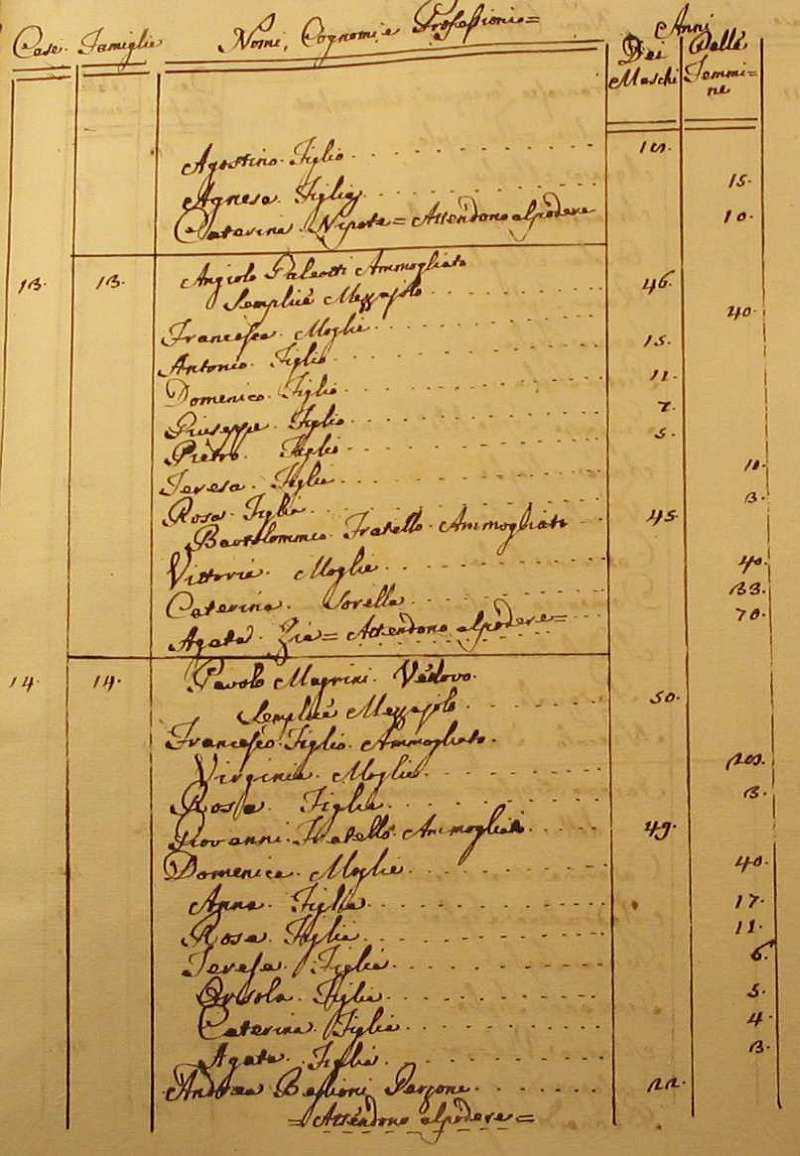 Case. Famiglie Nomi, Cognomi e Professioni= Anni
Dei Maschi Delle Femmi=ne
Agostino. Figlio
Agnesa. Figlia 15.
Caterina. Nipote= Attendono al podere 10.
13. 13. Angiolo Galeotti Ammogliato
Semplice Mezzajolo 46.
Francesca. Moglie 40.
Antonio. Figlio 15.
Domenico. Figlio 11.
Giuseppe. Figlio 7.
Pietro. Figlio 5.
Teresa. Figlia 10.
Rosa. Figlia 3.
Bartolommeo. Fratello. Ammogliato 45.
Vittoria. Moglie 40.
Caterina. Sorella 33.
Agata. Zia= Attendono al podere= 70.
14. 14. Pavolo Magrini. Vedovo.
Semplice Mezzajolo 50.
Francesco. Figlio. Ammogliato.
Virginia. Moglie
Rosa. Figlia 3.
Giovanni. Fratello. Ammogliato 49.
Domenica. Moglie 40.
Anna. Figlia 17.
Rosa. Figlia 11.
Teresa. Figlia 6.
Orsola. Figlia 5.
Caterina. Figlia 4.
Agata. Figlia 3.
Andrea Baglioni Garzone 22.
=Attendono al podere=